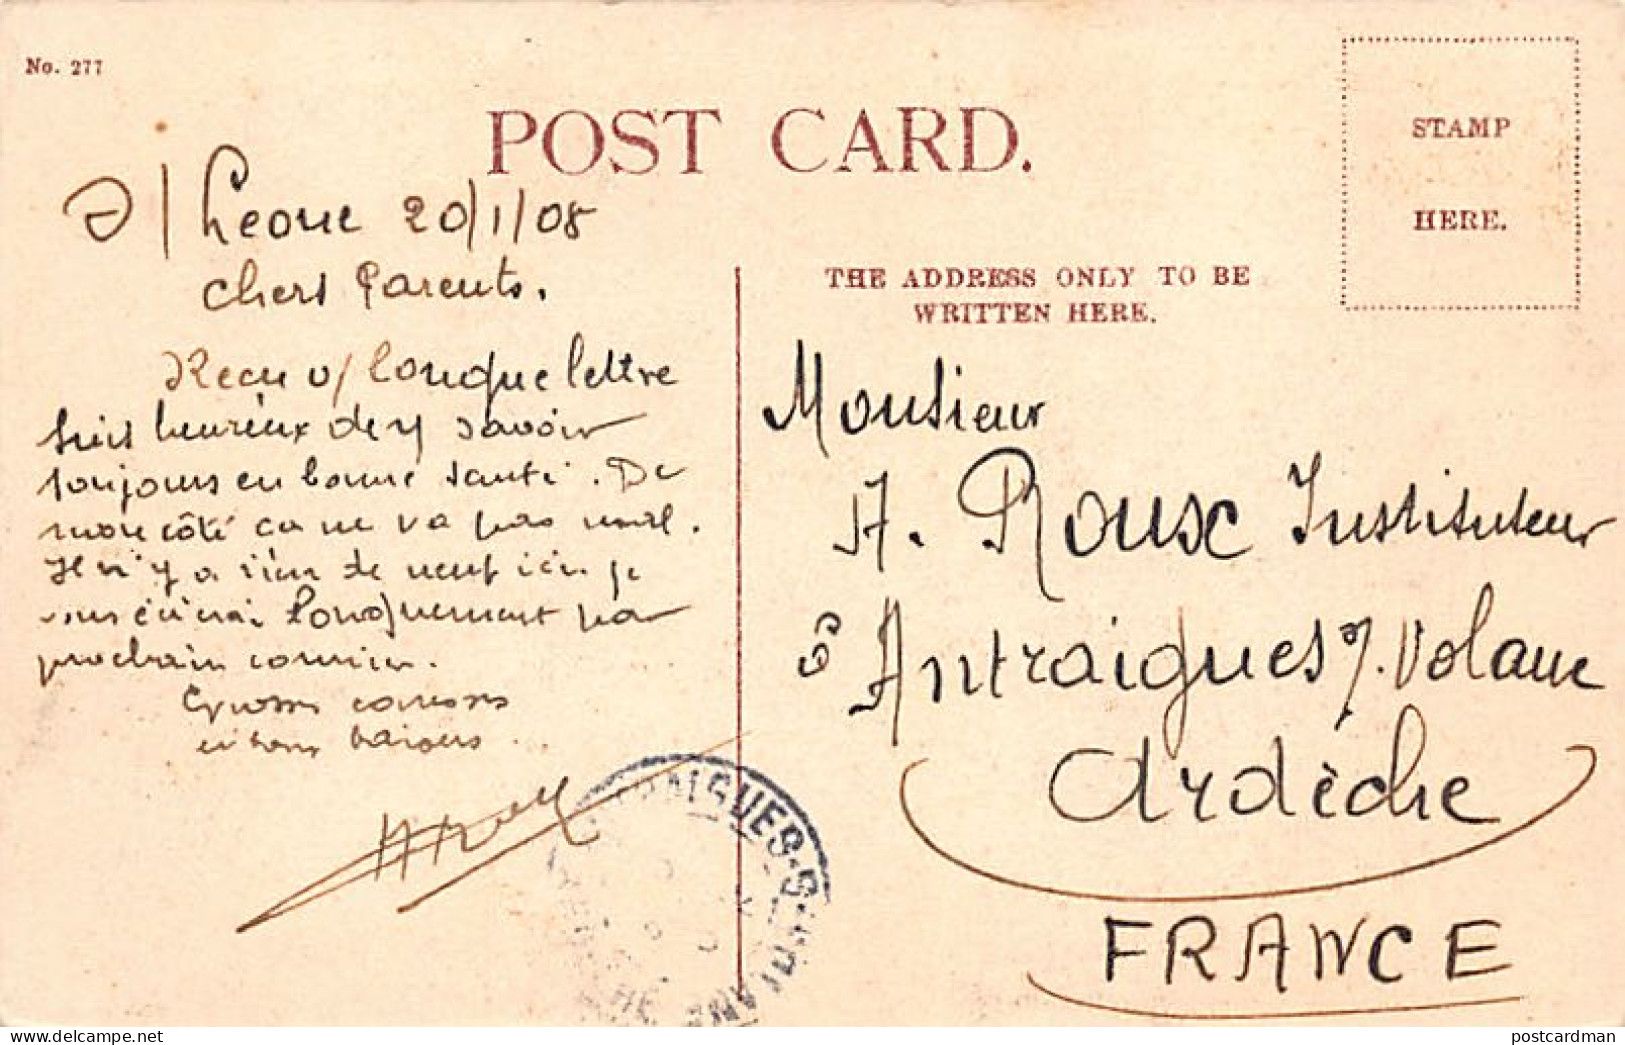 No. 277
POST CARD.
STAMP
HERE.
S/ Leone 20/1/08
chers Parents.
THE ADDRESS ONLY TO BE
WRITTEN HERE.
Recu v/ longue lettre
suis heureux de v/ savoir
toujours en bonne santé. De
mon côté ca ne va pas mal.
Il n'y a rien de neuf ici. je
vous écrirai longuement par
prochain courrier.
Grosses caresses
et bons baisers.
Monsieur
A. Roux Instituteur
Antraigues s/. Volane
Ardèche
FRANCE
delcampe.net
postcardman